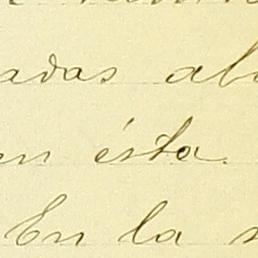 adas ab
en ésta.
En la s